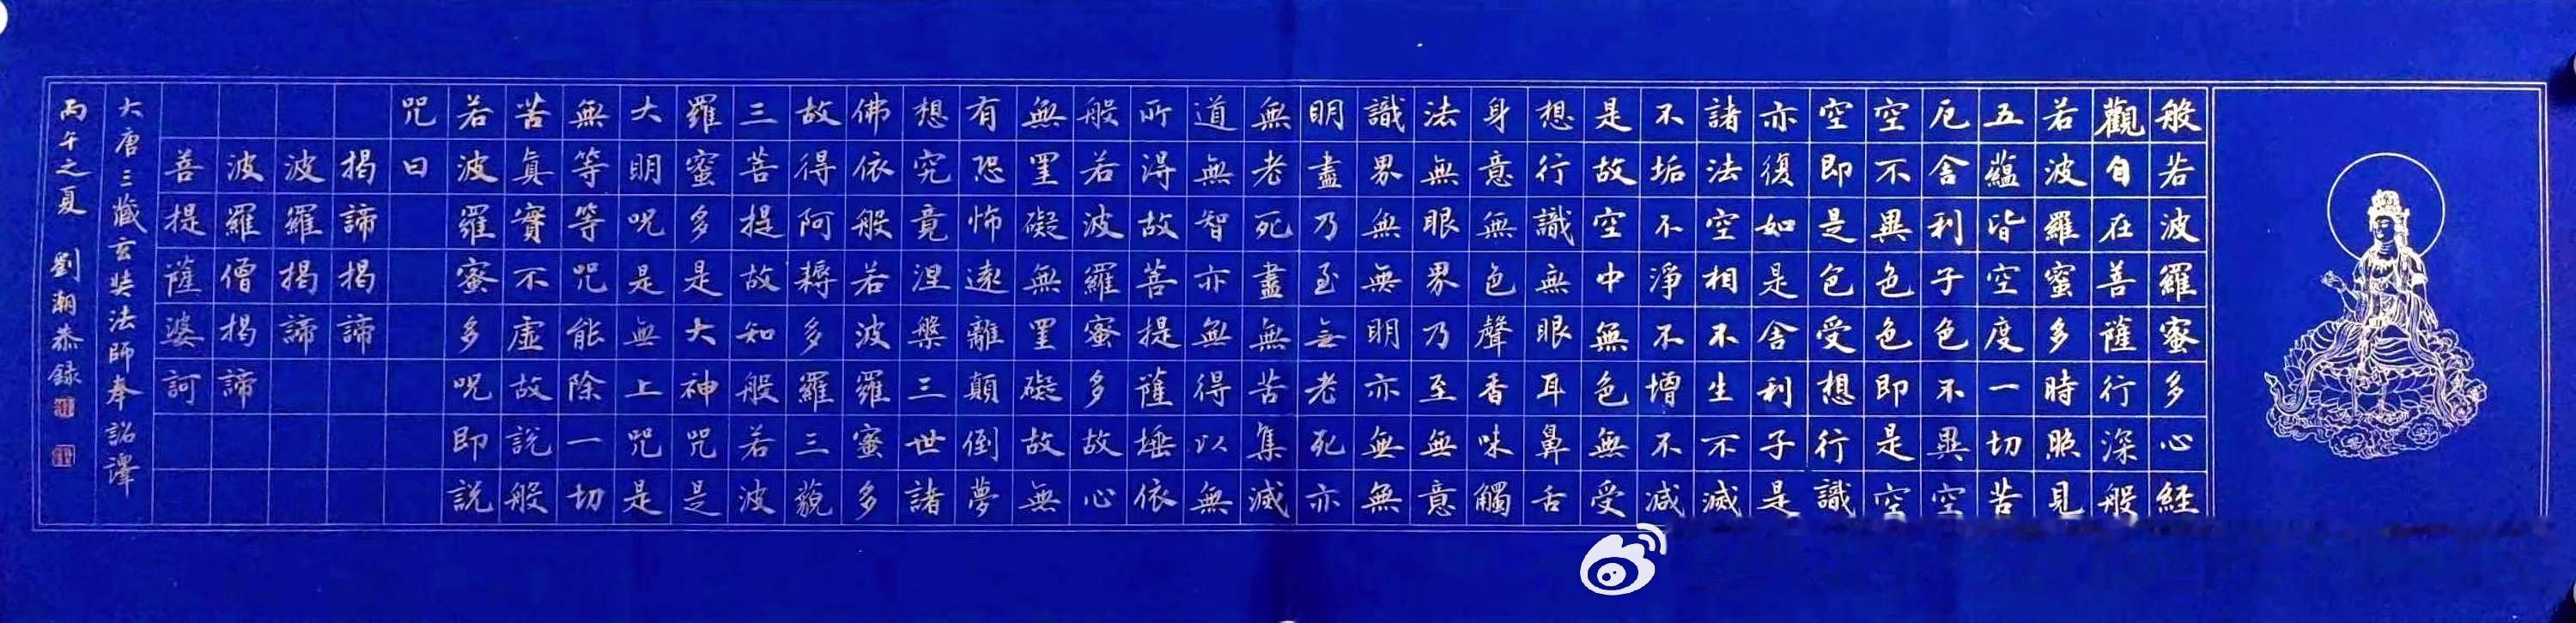 般若波羅蜜多心経
觀自在菩薩行深般
若波羅蜜多時照見
五蘊皆空度一切苦
厄舍利子色不異空
空不異色色即是空
空即是色受想行識
亦復如是舍利子是
諸法空相不生不滅
不垢不淨不增不減
是故空中無色無受
想行識無眼耳鼻舌
身意無色聲香味觸
法無眼界乃至無意
識界無無明亦無無
明盡乃至無老死亦
無老死盡無苦集滅
道無智亦無得以無
所得故菩提薩埵依
般若波羅蜜多故心
無罣礙無罣礙故無
有恐怖遠離顛倒夢
想究竟涅槃三世諸
佛依般若波羅蜜多
故得阿耨多羅三藐
三菩提故知般若波
羅蜜多是大神咒是
大明呪是無上咒是
無等等咒能除一切
苦真實不虛故說般
若波羅蜜多呪即說
咒曰
揭諦揭諦
波羅揭諦
波羅僧揭諦
菩提薩婆訶
大唐三藏玄奘法師奉詔譯
丙午之夏 劉潮恭錄